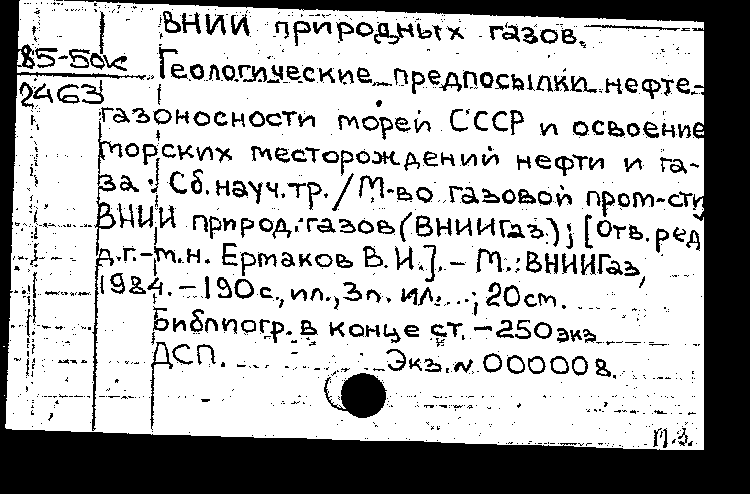 ВНИИ природных газов.
85-50к
2463
Геологические предпосылки нефте-
газоносности морей СССР и освоение
морских месторождений нефти и га-
за: Сб.науч.тр./М-во газовой пром-сти
ВНИИ природ.газов(ВНИИГаз); [Отв.ред
д.г.-м.н. Ермаков В.И.]. - М.:ВНИИГаз,
1984. - 190с., ил., 3л. ил...; 20см.
Библиогр. в конце ст. - 250экз
ДСП. Экз.N 000008.
М.З.